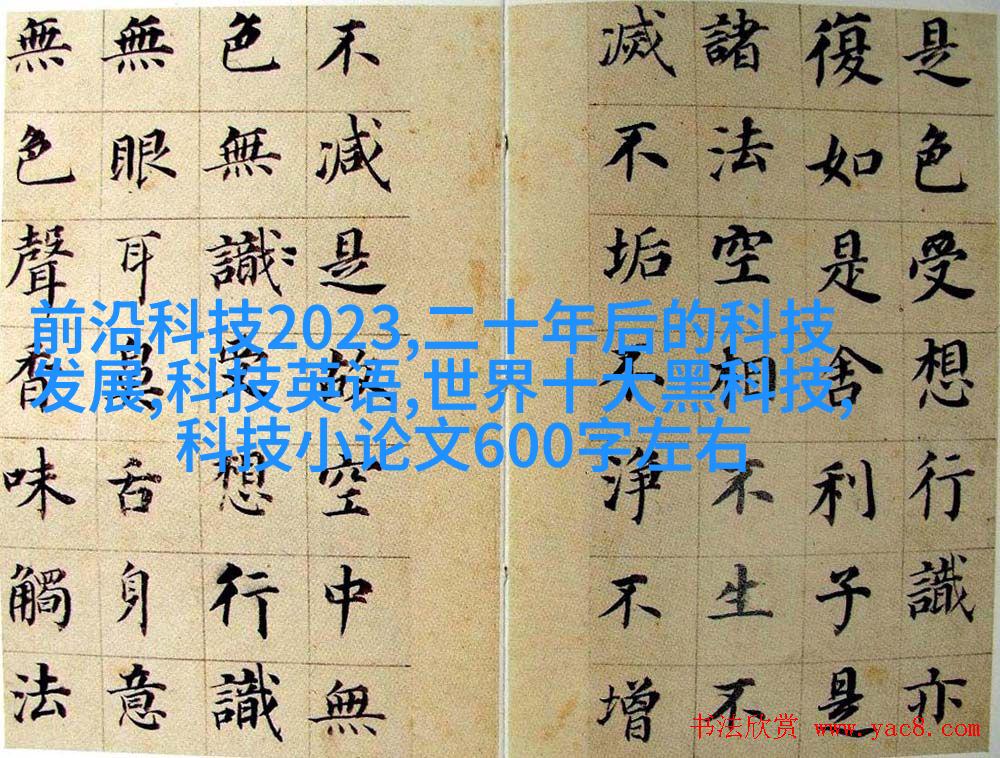 是色受想行識亦
復如是舍利子是
諸法空相不生不
滅不垢不淨不增
不減是故空中無
色無識受想行識
無眼耳鼻舌身意
無色聲香味觸法
前沿科技2023,二十年后的科技
发展,科技英语,世界十大黑科技,
科技小论文600字左右
书法欣赏 www.yac8.com